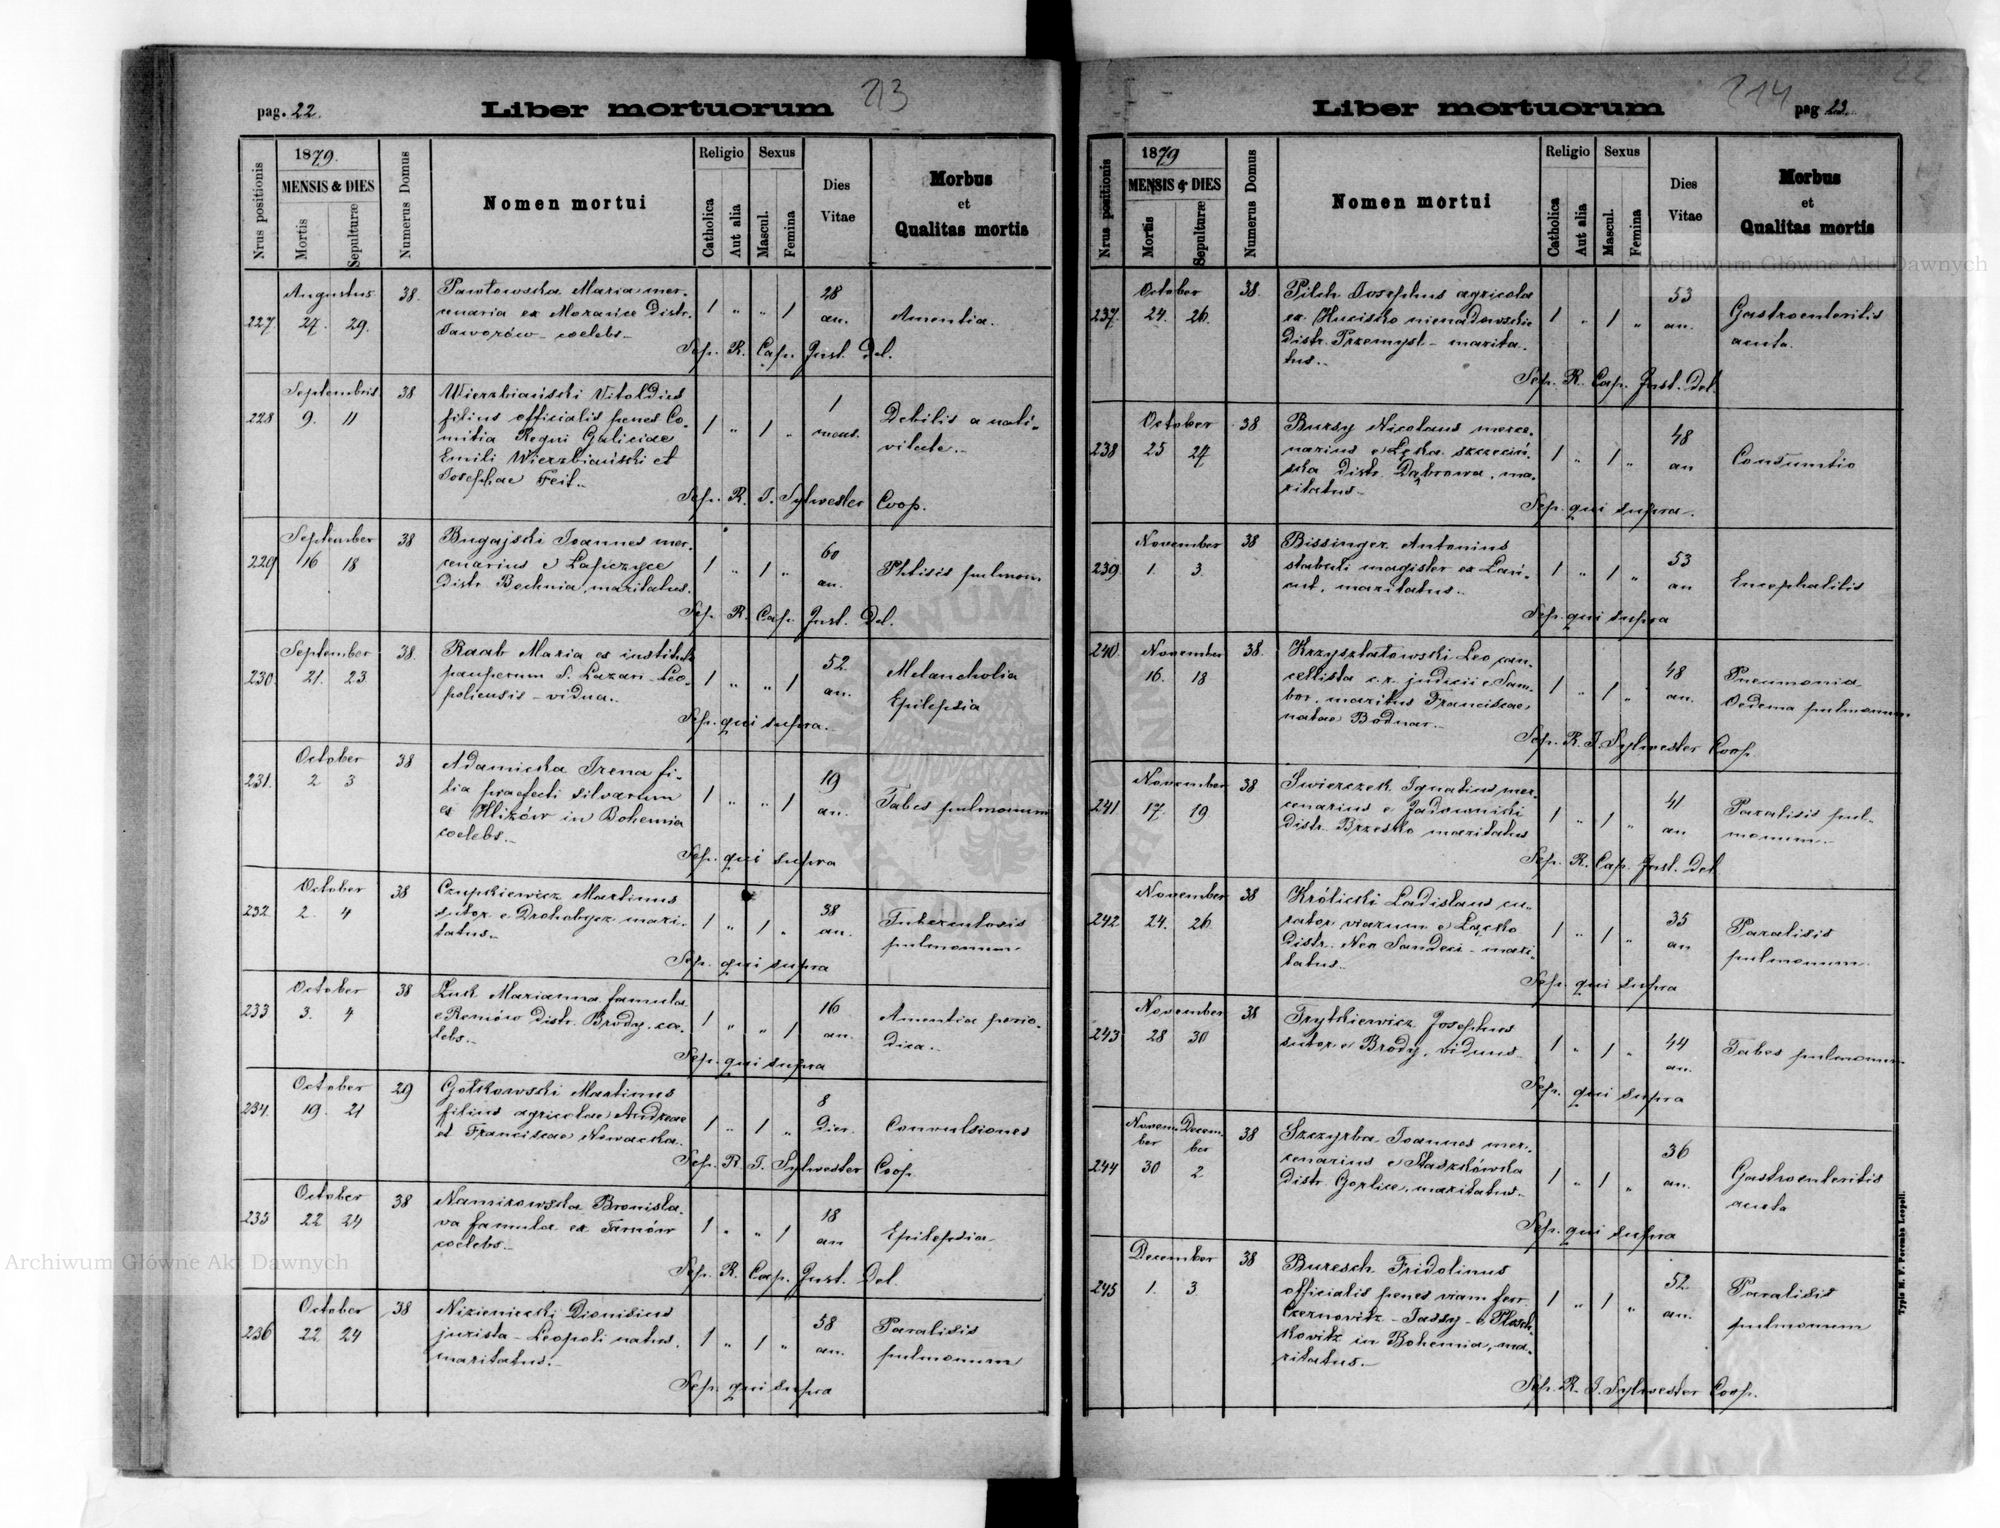 pag. 22.
Liber mortuorum
213
Nrus positionis
1879.
MENSIS & DIES
Mortis
Sepulturæ
Numerus Domus
Nomen mortui
Religio
Catholica
Aut alia
Sexus
Mascul.
Femina
Dies
Vitae
Morbus
et
Qualitas mortis
227. Augustus 27. 29. 38.
Pawłowska Maria mer-
cenaria ex Morańce Distr.
Jaworów - coelebs.-
1 " " 1
28
an.
Amentia.
Sep. R. Cap. Inst. Del.
228 Septembris 9. 11 38
Wierzbiański Vitoldus
filius officialis penes Co-
mitia Regni Galiciae
Emili Wierzbiański et
Josephae Feit.-
1 " 1 "
1
mens.
Debilis a nati-
vitate.-
Sep. R. J. Sylwester Coop.
229 September 16 18 38
Bugajski Joannes mer-
cenarius e Łapczyce
Distr. Bochnia, maritatus.
1 " 1 "
60
an.
Phtisis pulmon
Sep. R. Cap. Inst. Del.
230. September 21. 23. 38.
Raab Maria ex instituto
pauperum S. Lazari Leo-
poliensis - vidua.-
1 " " 1
52.
an.
Melancholia
Epilepsia
Sep. qui supra.-
231. October 2 3 38
Adamicka Irena fi-
lia praefecti silvarum
ex Hlizów in Bohemia
coelebs.-
1 " " 1
19
an.
Tabes pulmonum
Sep. qui supra
232. October 2. 4 38
Czupkiewicz Martinus
sutor e Drohobycz mari-
tatus.-
1 " 1 "
38
an.
Tuberculosis
pulmonum
Sep. qui supra
233 October 3. 4 38
Żuk Marianna famula
e Remów Distr. Brody, co-
lebs.-
1 " " 1
16
an.
Amentia perio-
dica.-
Sep. qui supra
234. October 19. 21 29
Gołkowski Martinus
filius agricolae Andreae
et Franciscae Nowacka.
1 " 1 "
8
Dier.
Convulsiones
Sep. R. J. Sylwester Coop.
235 October 22 24 38
Namirowska Bronisla-
va famula ex Tarnów
coelebs.-
1 " " 1
18
an
Epilepsia
Sep. R. Cap. Inst. Del.
236 October 22 24 38
Nizieniecki Dionisius
jurista - Leopoli natus,
maritatus.-
1 " 1 "
58
an.
Paralisis
pulmonum
Sep. qui supra
Liber mortuorum
214
pag 23.
22
Nrus positionis
1879
MENSIS & DIES
Mortis
Sepulturæ
Numerus Domus
Nomen mortui
Religio
Catholica
Aut alia
Sexus
Mascul.
Femina
Dies
Vitae
Morbus
et
Qualitas mortis
237. October 24. 26. 38.
Pilch Josephus agricola
ex Hucisko nienadowskie
Distr. Przemyśl - marita-
tus.-
1 " 1 "
53
an.
Gastroenteritis
acuta.
Sep. R. Cap. Inst. Del.
238 October 25 27 38
Bursy Nicolaus merce-
narius e Lęka szczeciń-
ska Distr. Dąbrowa, ma-
ritatus.-
1 " 1 "
48
an
Consumtio
Sep. qui supra.
239. November 1. 3. 38
Bissinger Antonius
stabuli magister ex Łań-
cut, maritatus.-
1 " 1 "
53
an
Encephalitis
Sep. qui supra
240. November 16. 18 38.
Krzyształowski Leo can-
cellista c.r. judicii e Sam-
bor, maritus Franciscae
natae Bodnar.-
1 " 1 "
48
an.
Pneumonia
Oedema pulmonum
Sep. R. J. Sylwester Coop.
241 November 17. 19 38
Swierczek Ignatius mer-
cenarius e Jadowniki
Distr. Brzesko maritatus
1 " 1 "
41
an
Paralisis pul-
monum.-
Sep. R. Cap. Inst. Del
242 November 24. 26. 38
Królicki Ladislaus cu-
rator viarum e Łącko
Distr. Neo Sandeci - mari-
tatus.
1 " 1 "
35
an
Paralisis
pulmonum.
Sep. qui supra
243 November 28 30 38
Trytkiewicz Josephus
sutor e Brody, viduus
1 " 1 "
44
an.
Tabes pulmonum
Sep. qui supra
244 Novem- ber 30 Decem- ber 2 38
Szczyrba Joannes mer-
cenarius e Staszkówka
Distr. Gorlice, maritatus.
1 " 1 "
36
an.
Gastroenteritis
acuta
Sep. qui supra
245 December 1. 3. 38
Buresch Fridolinus
officialis penes viam ferr
Czernovitz - Jassy - e Plosch-
kovitz in Bohemia, ma-
ritatus.-
1 " 1 "
52.
an.
Paralisis
pulmonum
Sep. R. J. Sylwester Coop.
Typis M. F. Poremba Leopoli.
Archiwum Główne Akt Dawnych
Archiwum Główne Akt Dawnych